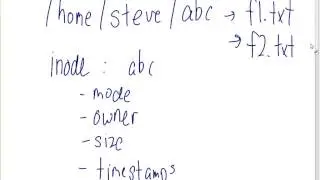 /home/steve/abc → f1.txt
→ f2.txt
inode : abc
- mode
- owner
- size
- timestamps